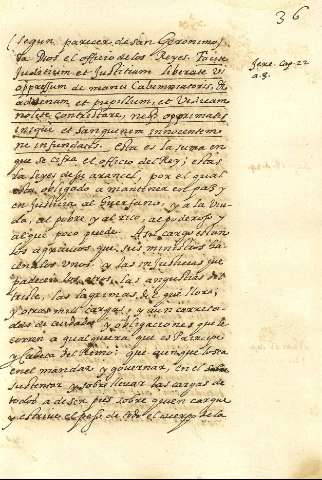 36
(segun parecer de san Geronimo)
da Dios el officio de los Reyes. Facite
Judicium et Justitiam liberate vi
oppressum de manu Calumniatoris, et
advenam et pupillum, et Viduam
nolite contristare, neq opprimatis
inique et sanguinem innocentem
ne infundatis. Esta es la suma en
que se cifra el officio del Rey; estas
las leyes de su arancel, por el qual
está obligado a mantener en paz y
en Justicia al huerfano, y a la viu
da, al pobre y al rico, al poderoso y
al que poco puede. A su cargo estan
los agravios que sus ministros ha
cen a los unos, y las injusticias que
padecen los otros, las angustias del
triste, las lagrimas del que llora;
y otras mil cargas, y aun carreta
das de cuidados y obligaciones que le
corren a qualquiera que es Principe
y Cabeca del Reino: que aunque lo sea
en el mandar y governar, en el
sustentar y sobrellevar las cargas de
todos a de ser pies sobre quien cargue
y estrive el peso de todo el cuerpo de la
Jere. Cap. 22
a. 3.